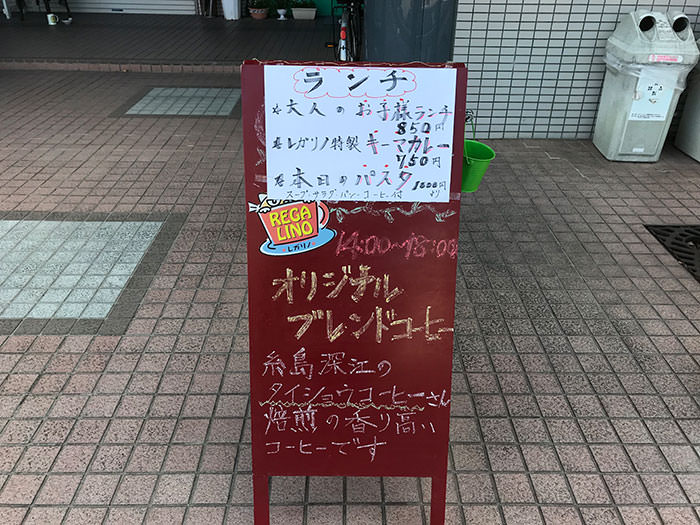 ランチ
☆大人のお子様ランチ
850円
☆レガリノ特製 キーマカレー
750円
☆本日のパスタ 1000円
スープ・サラダ・パン・コーヒー付 より
REGA
LINO
レガリノ
14:00~18:00
オリジナル
ブレンドコーヒー
糸島深江の
タイショウコーヒーさん
焙煎の香り高い
コーヒーです